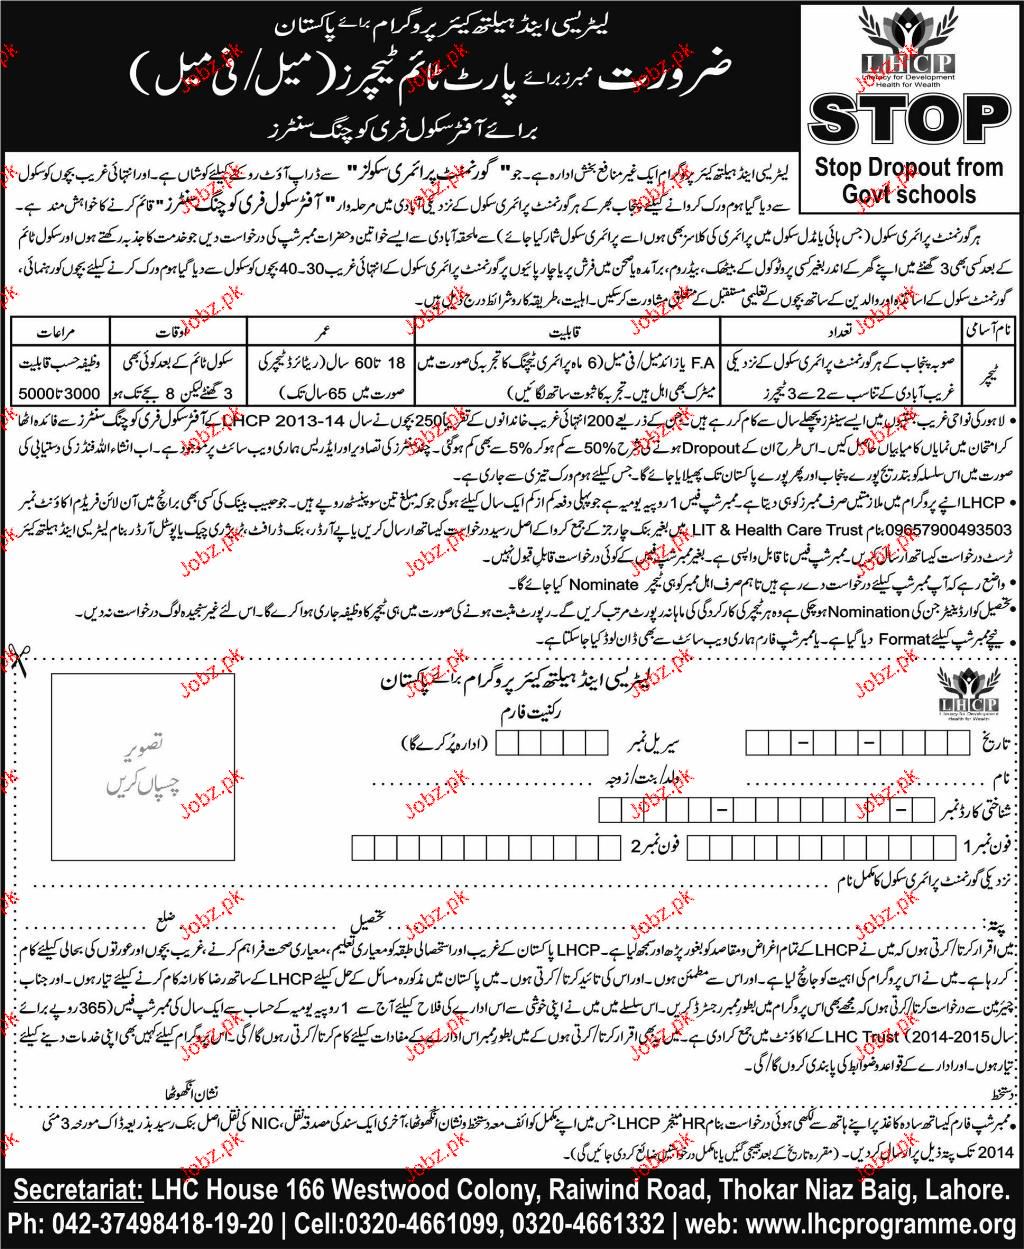 لیٹریسی اینڈ ہیلتھ کیئر پروگرام برائے پاکستان
ضرورت ممبرز برائے پارٹ ٹائم ٹیچرز (میل/فی میل)
برائے آفٹر سکول فری کوچنگ سنٹرز
LHCP
Literacy for Development
Health for Wealth
STOP
Stop Dropout from
Govt schools
لیٹریسی اینڈ ہیلتھ کیئر پروگرام ایک غیر منافع بخش ادارہ ہے۔ جو "گورنمنٹ پرائمری سکولز" سے ڈراپ آؤٹ روکنے کیلئے کوشاں ہے۔ اور انتہائی غریب بچوں کو سکول
سے دیا گیا ہوم ورک کروانے کیلئے پنجاب بھر کے ہر گورنمنٹ پرائمری سکول کے نزدیکی آبادی میں مرحلہ وار "آفٹر سکول فری کوچنگ سنٹرز" قائم کرنے کا خواہش مند ہے۔
ہر گورنمنٹ پرائمری سکول (جس ہائی یا مڈل سکول میں پرائمری کی کلاسز بھی ہوں اسے پرائمری سکول شمار کیا جائے) سے ملحقہ آبادی سے ایسے خواتین و حضرات ممبر شپ کی درخواست دیں جو خدمت کا جذبہ رکھتے ہوں اور سکول ٹائم
کے بعد کسی بھی 3 گھنٹے میں اپنے گھر کے اندر بغیر کسی پروٹوکول کے بیٹھک، بیڈ روم، برآمدہ یا صحن میں فرش پر یا چارپائیوں پر گورنمنٹ پرائمری سکول کے انتہائی غریب 30-40 بچوں کو سکول سے دیا گیا ہوم ورک کرنے کیلئے بچوں کو رہنمائی،
گورنمنٹ سکول کے اساتذہ اور والدین کے ساتھ بچوں کے تعلیمی مستقبل کے متعلق مشاورت کر سکیں۔ اہلیت، طریقہ کار و شرائط درج ذیل ہیں۔
نام آسامی | تعداد | قابلیت | عمر | اوقات | مراعات
ٹیچر | صوبہ پنجاب کے ہر گورنمنٹ پرائمری سکول کے نزدیکی | F.A یا زائد میل/فی میل (6 ماہ پرائمری ٹیچنگ کا تجربہ کی صورت میں | 18 تا 60 سال (ریٹائرڈ ٹیچر کی | سکول ٹائم کے بعد کوئی بھی | وظیفہ حسب قابلیت
غریب آبادی کے تناسب سے 2 سے 3 ٹیچرز | میٹرک بھی اہل ہیں۔ تجربہ کا ثبوت ساتھ لگائیں) | صورت میں 65 سال تک) | 3 گھنٹے لیکن 8 بجے تک ہو | 3000 تا 5000
• لاہور کی نواحی غریب بستیوں میں ایسے سینٹرز پچھلے سال سے کام کر رہے ہیں۔ جن کے ذریعے 200 انتہائی غریب خاندانوں کے تقریباً 250 بچوں نے سال 2013-14 LHCP کے آفٹر سکول فری کوچنگ سنٹرز سے فائدہ اٹھا
کر امتحان میں نمایاں کامیابیاں حاصل کیں۔ اس طرح ان کے Dropout ہونے کی شرح 50% سے کم ہو کر 5% سے بھی کم ہو گئی۔ چند سنٹرز کی تصاویر اور ایڈریس ہماری ویب سائٹ پر موجود ہے۔ اب انشاء اللہ فنڈز کی دستیابی کی
صورت میں اس سلسلہ کو بتدریج پورے پنجاب اور پھر پورے پاکستان تک پھیلایا جائے گا۔ جس کیلئے ہوم ورک تیزی سے جاری ہے۔
• LHCP اپنے پروگرام میں ملازمتیں صرف ممبرز کو ہی دیتا ہے۔ ممبر شپ فیس 1 روپیہ یومیہ ہے جو پہلی دفعہ کم از کم ایک سال کیلئے ہوگی جو کہ مبلغ تین سو پینسٹھ روپے ہیں۔ جو حبیب بینک کی کسی بھی برانچ میں آن لائن فریڈم اکاؤنٹ نمبر
09657900493503 بنام LIT & Health Care Trust میں بغیر بنک چارجز کے جمع کروا کے اصل رسید درخواست کیساتھ ارسال کریں یا پے آرڈر، بنک ڈرافٹ، ٹریژری چیک یا پوسٹل آرڈر بنام لیٹریسی اینڈ ہیلتھ کیئر
ٹرسٹ درخواست کیساتھ ارسال کریں۔ ممبر شپ فیس ناقابل واپسی ہے۔ بغیر ممبر شپ فیس کے کوئی درخواست قابل قبول نہیں۔
• واضع رہے کہ آپ ممبر شپ کیلئے درخواست دے رہے ہیں تاہم صرف اہل ممبر کو ہی ٹیچر Nominate کیا جائے گا۔
• تحصیل کوارڈینیٹر جن کی Nomination ہو چکی ہے وہ ہر ٹیچر کی کارکردگی کی ماہانہ رپورٹ مرتب کریں گے۔ رپورٹ مثبت ہونے کی صورت میں ہی ٹیچر کا وظیفہ جاری ہوا کرے گا۔ اس لئے غیر سنجیدہ لوگ درخواست نہ دیں۔
• نیچے ممبر شپ کیلئے Format دیا گیا ہے۔ یا ممبر شپ فارم ہماری ویب سائٹ سے بھی ڈان لوڈ کیا جا سکتا ہے۔
لیٹریسی اینڈ ہیلتھ کیئر پروگرام برائے پاکستان
LHCP
Literacy for Development
Health for Wealth
رکنیت فارم
تصویر
چسپاں کریں
تاریخ
سیریل نمبر (ادارہ پُر کرے گا)
نام ولد/بنت/زوجہ
شناختی کارڈ نمبر
فون نمبر 1 فون نمبر 2
نزدیکی گورنمنٹ پرائمری سکول کا مکمل نام
پتہ: تحصیل ضلع
میں اقرار کرتا/کرتی ہوں کہ میں نے LHCP کے تمام اغراض و مقاصد کو بغور پڑھ اور سمجھ لیا ہے۔ LHCP پاکستان کے غریب اور استحصالی طبقہ کو معیاری تعلیم، معیاری صحت فراہم کرنے، غریب بچوں اور عورتوں کی بحالی کیلئے کام
کر رہا ہے۔ میں نے اس پروگرام کی اہمیت کو جانچ لیا ہے۔ اور اس سے مطمئن ہوں۔ اور اس کی تائید کرتا/کرتی ہوں۔ میں پاکستان میں مذکورہ مسائل کے حل کیلئے LHCP کے ساتھ رضا کارانہ کام کرنے کیلئے تیار ہوں۔ اور جناب
چیئرمین سے درخواست کرتا/کرتی ہوں کہ مجھے بھی اس پروگرام میں بطور ممبر رجسٹرڈ کریں۔ اس سلسلے میں میں نے اپنی خوشی سے اس ادارے کی فلاح کیلئے آج سے 1 روپیہ یومیہ کے حساب سے ایک سال کی ممبر شپ فیس (365 روپے برائے
سال 2014-2015) LHC Trust کے اکاؤنٹ میں جمع کرا دی ہے۔ میں یہ بھی اقرار کرتا/کرتی ہوں کے میں بطور ممبر اس ادارے کے مفادات کیلئے کام کرتا/کرتی رہوں گا/گی۔ اس پروگرام کیلئے کہیں بھی اپنی خدمات دینے کیلئے
تیار ہوں۔ اور ادارے کے قواعد و ضوابط کی پابندی کروں گا/گی۔
دستخط نشان انگوٹھا
• ممبر شپ فارم کیساتھ سادہ کاغذ پر اپنے ہاتھ سے لکھی ہوئی درخواست بنام HR منیجر LHCP جس میں اپنے مکمل کوائف معہ دستخط و نشان انگوٹھا، آخری ایک سند کی مصدقہ نقل، NIC کی نقل اصل بنک رسید بذریعہ ڈاک مورخہ 3 مئی
2014 تک پتہ ذیل پر ارسال کر دیں۔ (مقررہ تاریخ کے بعد بھیجی گئیں یا نامکمل درخواستیں ضائع کر دی جائیں گی)۔
Secretariat: LHC House 166 Westwood Colony, Raiwind Road, Thokar Niaz Baig, Lahore.
Ph: 042-37498418-19-20 | Cell:0320-4661099, 0320-4661332 | web: www.lhcprogramme.org
Jobz.pk